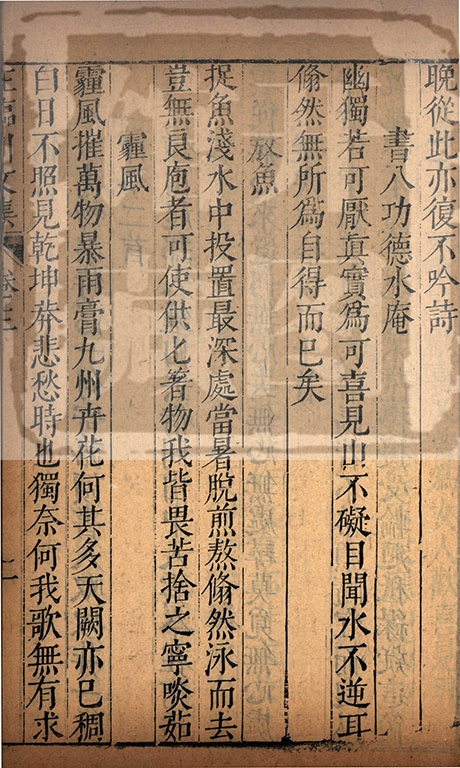 晚從此亦復不吟詩
書八功德水庵
幽獨若可厭真實為可喜見山不礙目聞水不逆耳
翛然無所為自得而已矣
放魚
捉魚淺水中投置最深處當暑脫煎熬翛然泳而去
豈無良庖者可使供匕箸物我皆畏苦捨之寧啖茹
霾風
霾風摧萬物暴雨膏九州卉花何其多天闕亦已稠
白日不照見乾坤莽悲愁時也獨奈何我歌無有求
王臨川文集 卷之二